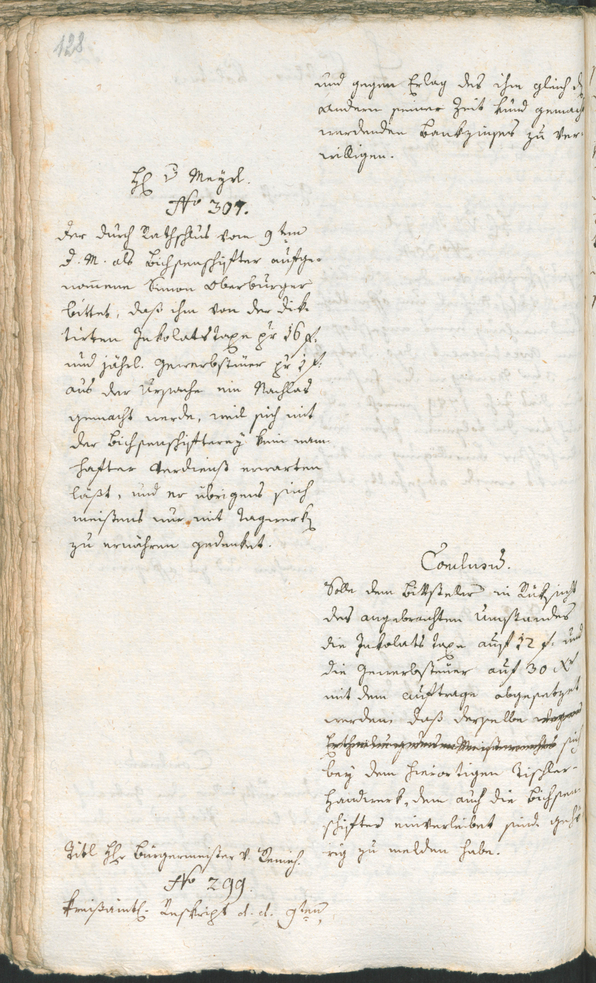 128
und gegen Erlag des ihm gleich den
andern seiner Zeit kund gemacht
werdenden Bankzinses zu ver-
willigen.
H. v. Meyrl.
No 304.
Der durch Rathschluß vom 9ten
d. M. als Bichsenschifter aufge-
nommene Simon Oberburger
bittet, daß ihm von der dik-
tirten Inkolatstaxe pr 16 f.
und jährl. Gewerbsteuer pr 1 f.
aus der Ursache ein Nachlas
gemacht werde, weil sich mit
der Bichsenschifterey kein nam-
hafter Verdienst erwarten
läßt, und er übrigens sich
meistens nur mit Tagwerk
zu ernähren gedenket.
Conclusum.
Solle dem Bittsteler in Rücksicht
des angebrachten Umstandes
die Inkolatstaxe auf 12 f. und
die Gewerbsteuer auf 30 Xr
mit dem Auftrage abgesetzet
werden: daß derselbe wegen
Ertheilung des Meisterrechts sich
bey dem hierortigen Tischler-
handwerk, dem auch die Bichsen-
schifter einverleibet sind, gehö-
rig zu melden habe.
Titl H. Bürgermeister v.
No 299.
Kreisämtl. Reskript d. d. 9ten